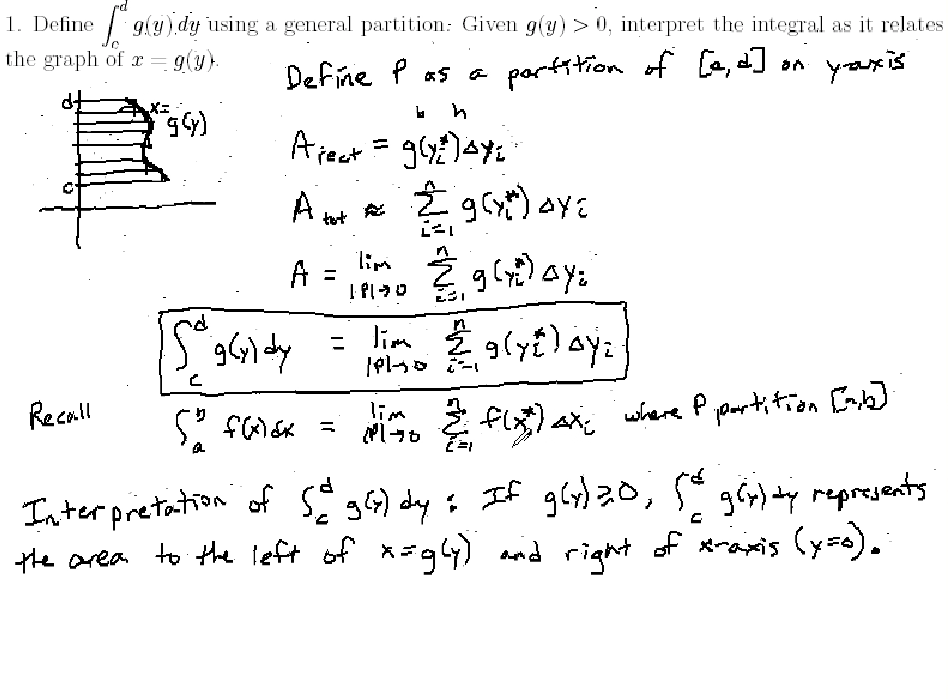 1. Define ∫_c^d g(y) dy using a general partition: Given g(y) > 0, interpret the integral as it relates
the graph of x = g(y).
Define P as a partition of [c,d] on y-axis
d
x=
g(y)
c
b h
A rect = g(y_i^*)Δy_i
A tot ≈ Σ_{i=1}^n g(y_i^*) Δy_i
A = lim_{|P|→0} Σ_{i=1}^n g(y_i^*) Δy_i
∫_c^d g(y) dy = lim_{|P|→0} Σ_{i=1}^n g(y_i^*) Δy_i
Recall ∫_a^b f(x) dx = lim_{|P|→0} Σ_{i=1}^n f(x_i^*) Δx_i where P partition [a,b]
Interpretation of ∫_c^d g(y) dy : If g(y)≥0, ∫_c^d g(y) dy represents
the area to the left of x=g(y) and right of x-axis (y=0).